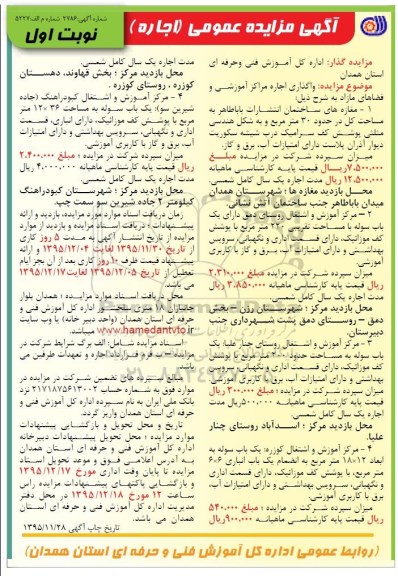 شماره آگهی: ۲۷۸۶ شماره م الف: ۵۲۲۷
نوبت اول
آگهی مزایده عمومی (اجاره)
مزایده گذار: اداره کل آموزش فنی وحرفه ای
استان همدان
موضوع مزایده: واگذاری اجاره مراکز آموزشی و
فضاهای مازاد به شرح ذیل:
۱ – مغازه های ساختمان انتشارات باباطاهر به
مساحت کل در حدود ۳۰ متر مربع و به شکل هندسی
مثلثی پوشش کف سرامیک درب شیشه سکوریت
دیوار آذران پلاست دارای امتیازات آب، برق و گاز.
میزان سپرده شرکت در مزایده مبلغ
۷.۵۰۰.۰۰۰ ریال قیمت پایه کارشناسی ماهیانه
۱۲.۵۰۰.۰۰۰ ریال مدت اجاره یک سال کامل شمسی.
محل بازدید مغازه ها: شهرستان همدان
میدان باباطاهر جنب ساختمان آتش نشانی.
۲ – مرکز آموزش و اشتغال روستای دمق دارای یک
باب سوله با مساحت تقریبی ۲۰۰ متر مربع با پوشش
کف موزائیک، دارای قسمت اداری و نگهبانی، سرویس
بهداشتی و دارای امتیازات آب، برق و گاز با کاربری
آموزشی.
میزان سپرده شرکت در مزایده مبلغ ۲.۳۱۰.۰۰۰
ریال قیمت پایه کارشناسی ماهیانه ۳.۸۵۰.۰۰۰ ریال
مدت اجاره یک سال کامل شمسی.
محل بازدید مرکز: شهرستان رزن – بخش
دمق – روستای دمق پشت شهرداری جنب
دبیرستان.
۳ – مرکز آموزش و اشتغال روستای چنار علیا: یک
باب سوله به مساحت حدود ۲۰۰ متر مربع با پوشش
کف موزائیک، دارای قسمت اداری و نگهبانی، سرویس
بهداشتی و دارای امتیازات آب، برق با کاربری آموزشی.
میزان سپرده شرکت در مزایده مبلغ ۳۰۰.۰۰۰ ریال
قیمت پایه کارشناسی ماهیانه ۵۰۰.۰۰۰ ریال مدت
اجاره یک سال کامل شمسی.
محل بازدید مرکز: اسدآباد روستای چنار
علیا.
۴ – مرکز آموزش و اشتغال کوزره: یک باب سوله به
ابعاد ۱۲×۱۸ متر مربع به انضمام یک باب انباری ۶×۶
متر مربع، با پوشش کف موزائیک، دارای قسمت اداری
و نگهبانی، سرویس بهداشتی و دارای امتیازات آب،
برق با کاربری آموزشی.
میزان سپرده شرکت در مزایده: مبلغ ۵۴۰.۰۰۰
ریال قیمت پایه کارشناسی ماهیانه ۹۰۰.۰۰۰ ریال
مدت اجاره یک سال کامل شمسی.
محل بازدید مرکز: بخش قهاوند، دهستان
کوزره، روستای کوزره.
۴ – مرکز آموزش و اشتغال کبودراهنگ (جاده
شیرین سو): یک باب سوله به مساحت ۳۶×۱۲ متر
مربع با پوشش کف موزائیک، دارای انباری، قسمت
اداری و نگهبانی، سرویس بهداشتی و دارای امتیازات
آب، برق و گاز با کاربری آموزشی.
میزان سپرده شرکت در مزایده: مبلغ ۲.۴۰۰.۰۰۰
ریال قیمت پایه کارشناسی ماهیانه ۴.۰۰۰.۰۰۰ ریال
مدت اجاره یک سال کامل شمسی.
محل بازدید مرکز: شهرستان کبودراهنگ
کیلومتر ۲ جاده شیرین سو سمت چپ.
زمان دریافت اسناد موارد مورد مزایده، بازدید و ارائه
پیشنهادات: دریافت اسناد مزایده و بازدید از موارد
مزایده از تاریخ انتشار آگهی به مدت ۵ روز کاری
از تاریخ ۱۳۹۵/۱۱/۳۰ لغایت ۱۳۹۵/۱۲/۰۴ و ارائه
پیشنهاد قیمت ظرف ۱۰ روز کاری بعد از آن بجز ایام
تعطیل از تاریخ ۱۳۹۵/۱۲/۰۵ لغایت ۱۳۹۵/۱۲/۱۷
می باشد.
محل دریافت اسناد موارد مزایده: همدان بلوار
جانبازان ۱۸ متری سنجر اداره کل آموزش فنی و
حرفه ای استان همدان (واحد دبیرخانه) یا وب سایت
www.hamedantvto.ir می باشد.
اسناد مزایده شامل: الف برگ شرایط شرکت در
مزایده –ب فرم قرارداد اجاره و تعهدات طرفین می
باشد.
مبالغ سپرده های تضمین شرکت در مزایده در
موارد فوق به شماره حساب ۲۱۷۱۸۷۵۶۱۳۰۰۲ نزد
بانک ملی ایران به نام سپرده اداره کل آموزش فنی و
حرفه ای استان همدان واریز گردد.
تاریخ و محل تحویل و بازگشایی پیشنهادات
موارد مزایده: محل تحویل پیشنهادات دبیرخانه
اداره کل آموزش فنی و حرفه ای استان همدان
به آدرس اعلامی فوق و موعد تحویل اسناد
مزایده تا پایان وقت اداری مورخ ۱۳۹۵/۱۲/۱۷
و بازگشایی پاکتهای پیشنهادات مزایده راس
ساعت ۱۲ مورخ ۱۳۹۵/۱۲/۱۸ در محل دفتر
مدیریت اداره کل آموزش فنی و حرفه ای استان
همدان می باشد.
تاریخ چاپ آگهی ۱۳۹۵/۱۱/۲۸
(روابط عمومی اداره کل آموزش فنی و حرفه ای استان همدان)